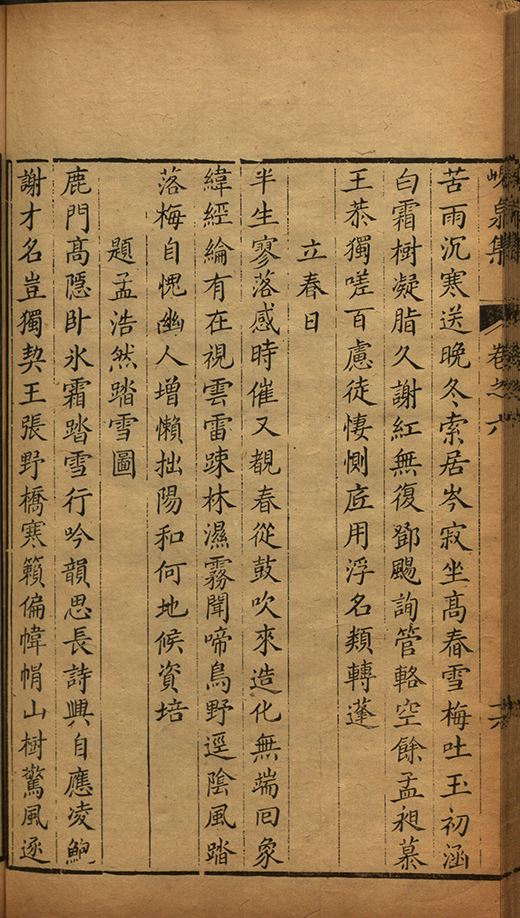 峴泉集 卷之六
苦雨沉寒送晚冬索居岑寂坐髙舂雪梅吐玉初涵
白霜樹凝脂久謝紅無復鄧颺詢管輅空餘孟昶慕
王恭獨嗟百慮徒悽惻底用浮名類轉蓬
立春日
半生寥落感時催又覩春從鼓吹來造化無端囘象
緯經綸有在視雲雷踈林濕霧聞啼鳥野逕陰風踏
落梅自愧幽人增懶拙陽和何地候資培
題孟浩然踏雪圖
鹿門髙隱卧氷霜踏雪行吟韻思長詩興自應凌鮑
謝才名豈獨契王張野橋寒籟偏幃㡓山樹驚風逐